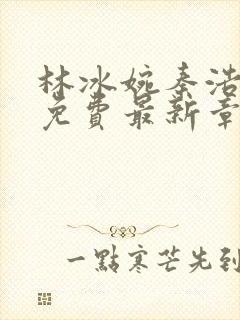 林冰婉秦浩
免費最新章
一點寒芒先到